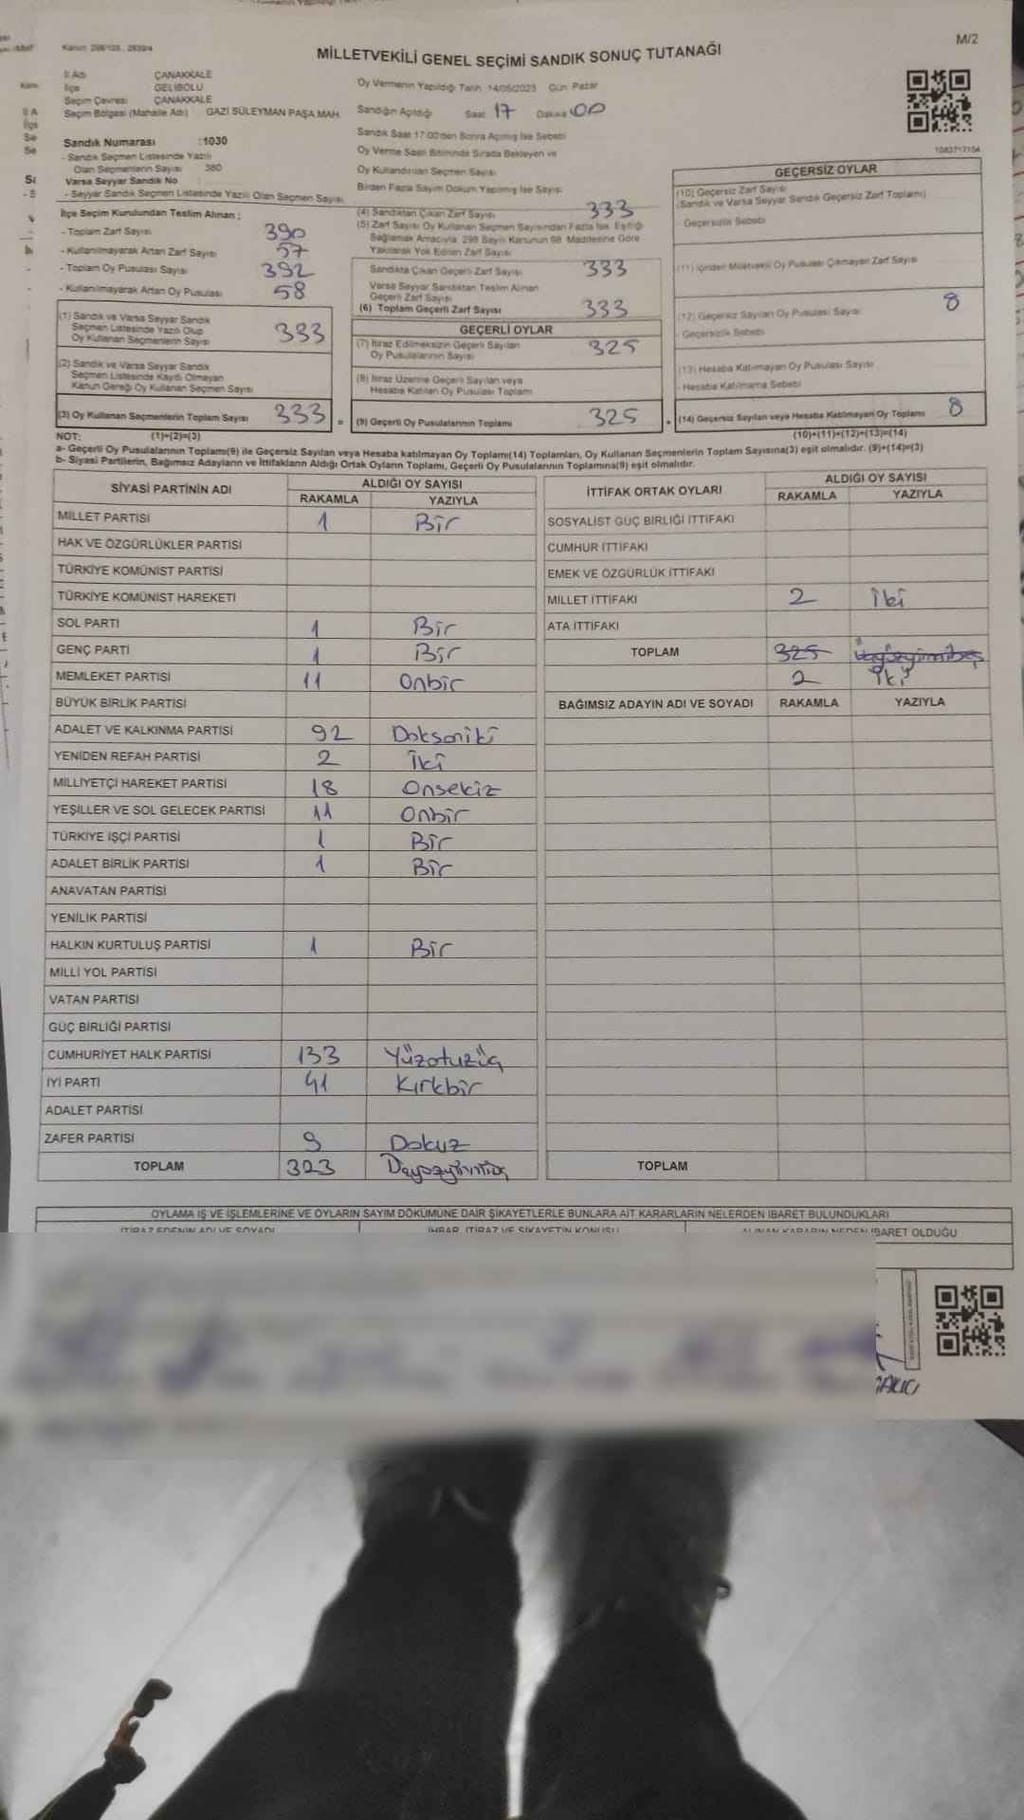 M/2
MİLLETVEKİLİ GENEL SEÇİMİ SANDIK SONUÇ TUTANAĞI
İl Adı ÇANAKKALE
İlçe GELİBOLU
Seçim Çevresi ÇANAKKALE
Seçim Bölgesi (Mahalle Adı) GAZİ SÜLEYMAN PAŞA MAH.
Sandık Numarası :1030
- Sandık Seçmen Listesinde Yazılı
Olan Seçmenlerin Sayısı 380
Varsa Seyyar Sandık No
- Seyyar Sandık Seçmen Listesinde Yazılı Olan Seçmen Sayısı
Oy Vermenin Yapıldığı Tarih :14/05/2023 Gün: Pazar
Sandığın Açıldığı Saat 17 Dakika 00
Sandık Saat 17:00'den Sonra Açılmış İse Sebebi
Oy Verme Saati Bitiminde Sırada Bekleyen ve
Oy Kullandırılan Seçmen Sayısı
Birden Fazla Sayım Döküm Yapılmış İse Sayısı
İlçe Seçim Kurulundan Teslim Alınan ;
- Toplam Zarf Sayısı 390
- Kullanılmayarak Artan Zarf Sayısı 57
- Toplam Oy Pusulası Sayısı 392
- Kullanılmayarak Artan Oy Pusulası 58
(1) Sandık ve Varsa Seyyar Sandık
Seçmen Listesinde Yazılı Olup
Oy Kullanan Seçmenlerin Sayısı 333
(2) Sandık ve Varsa Seyyar Sandık
Seçmen Listesinde Kaydı Olmayan
Kanun Gereği Oy Kullanan Seçmen Sayısı
(3) Oy Kullanan Seçmenlerin Toplam Sayısı 333
(4) Sandıktan Çıkan Zarf Sayısı 333
(5) Zarf Sayısı Oy Kullanan Seçmen Sayısından Fazla İse, Eşitliği
Sağlamak Amacıyla 298 Sayılı Kanunun 98. Maddesine Göre
Yakılarak Yok Edilen Zarf Sayısı
Sandıkta Çıkan Geçerli Zarf Sayısı 333
Varsa Seyyar Sandıktan Teslim Alınan
Geçerli Zarf Sayısı
(6) Toplam Geçerli Zarf Sayısı 333
GEÇERLİ OYLAR
(7) İtiraz Edilmeksizin Geçerli Sayılan
Oy Pusulalarının Sayısı 325
(8) İtiraz Üzerine Geçerli Sayılan veya
Hesaba Katılan Oy Pusulası Toplamı
(9) Geçerli Oy Pusulalarının Toplamı 325
GEÇERSİZ OYLAR
(10) Geçersiz Zarf Sayısı
(Sandık ve Varsa Seyyar Sandık Geçersiz Zarf Toplamı)
Geçersizlik Sebebi
(11) İçinden Milletvekili Oy Pusulası Çıkmayan Zarf Sayısı
(12) Geçersiz Sayılan Oy Pusulası Sayısı 8
- Geçersizlik Sebebi
(13) Hesaba Katılmayan Oy Pusulası Sayısı
- Hesaba Katılmama Sebebi
(14) Geçersiz Sayılan veya Hesaba Katılmayan Oy Toplamı 8
NOT: (1)+(2)=(3) (10)+(11)+(12)+(13)=(14)
a- Geçerli Oy Pusulalarının Toplamı(9) ile Geçersiz Sayılan veya Hesaba katılmayan Oy Toplamı(14) Toplamları, Oy Kullanan Seçmenlerin Toplam Sayısına(3) eşit olmalıdır. (9)+(14)=(3)
b- Siyasi Partilerin, Bağımsız Adayların ve İttifakların Aldığı Ortak Oyların Toplamı, Geçerli Oy Pusulalarının Toplamına(9) eşit olmalıdır.
SİYASİ PARTİNİN ADI ALDIĞI OY SAYISI
RAKAMLA YAZIYLA
MİLLET PARTİSİ 1 Bir
HAK VE ÖZGÜRLÜKLER PARTİSİ
TÜRKİYE KOMÜNİST PARTİSİ
TÜRKİYE KOMÜNİST HAREKETİ
SOL PARTİ 1 Bir
GENÇ PARTİ 1 Bir
MEMLEKET PARTİSİ 11 Onbir
BÜYÜK BİRLİK PARTİSİ
ADALET VE KALKINMA PARTİSİ 92 Doksaniki
YENİDEN REFAH PARTİSİ 2 İki
MİLLİYETÇİ HAREKET PARTİSİ 18 Onsekiz
YEŞİLLER VE SOL GELECEK PARTİSİ 11 Onbir
TÜRKİYE İŞÇİ PARTİSİ 1 Bir
ADALET BİRLİK PARTİSİ 1 Bir
ANAVATAN PARTİSİ
YENİLİK PARTİSİ
HALKIN KURTULUŞ PARTİSİ 1 Bir
MİLLİ YOL PARTİSİ
VATAN PARTİSİ
GÜÇ BİRLİĞİ PARTİSİ
CUMHURİYET HALK PARTİSİ 133 Yüzotuzüç
İYİ PARTİ 41 Kırkbir
ADALET PARTİSİ
ZAFER PARTİSİ 9 Dokuz
TOPLAM 323
İTTİFAK ORTAK OYLARI ALDIĞI OY SAYISI
RAKAMLA YAZIYLA
SOSYALİST GÜÇ BİRLİĞİ İTTİFAKI
CUMHUR İTTİFAKI
EMEK VE ÖZGÜRLÜK İTTİFAKI
MİLLET İTTİFAKI 2 İki
ATA İTTİFAKI
TOPLAM 325 Üçyüzyirmibeş
2 İki
BAĞIMSIZ ADAYIN ADI VE SOYADI RAKAMLA YAZIYLA
TOPLAM
OYLAMA İŞ VE İŞLEMLERİNE VE OYLARIN SAYIM DÖKÜMÜNE DAİR ŞİKAYETLERLE BUNLARA AİT KARARLARIN NELERDEN İBARET BULUNDUKLARI
İTİRAZ EDENİN ADI VE SOYADI İHBAR, İTİRAZ VE ŞİKAYETİN KONUSU ALINAN KARARIN NEDEN İBARET OLDUĞU